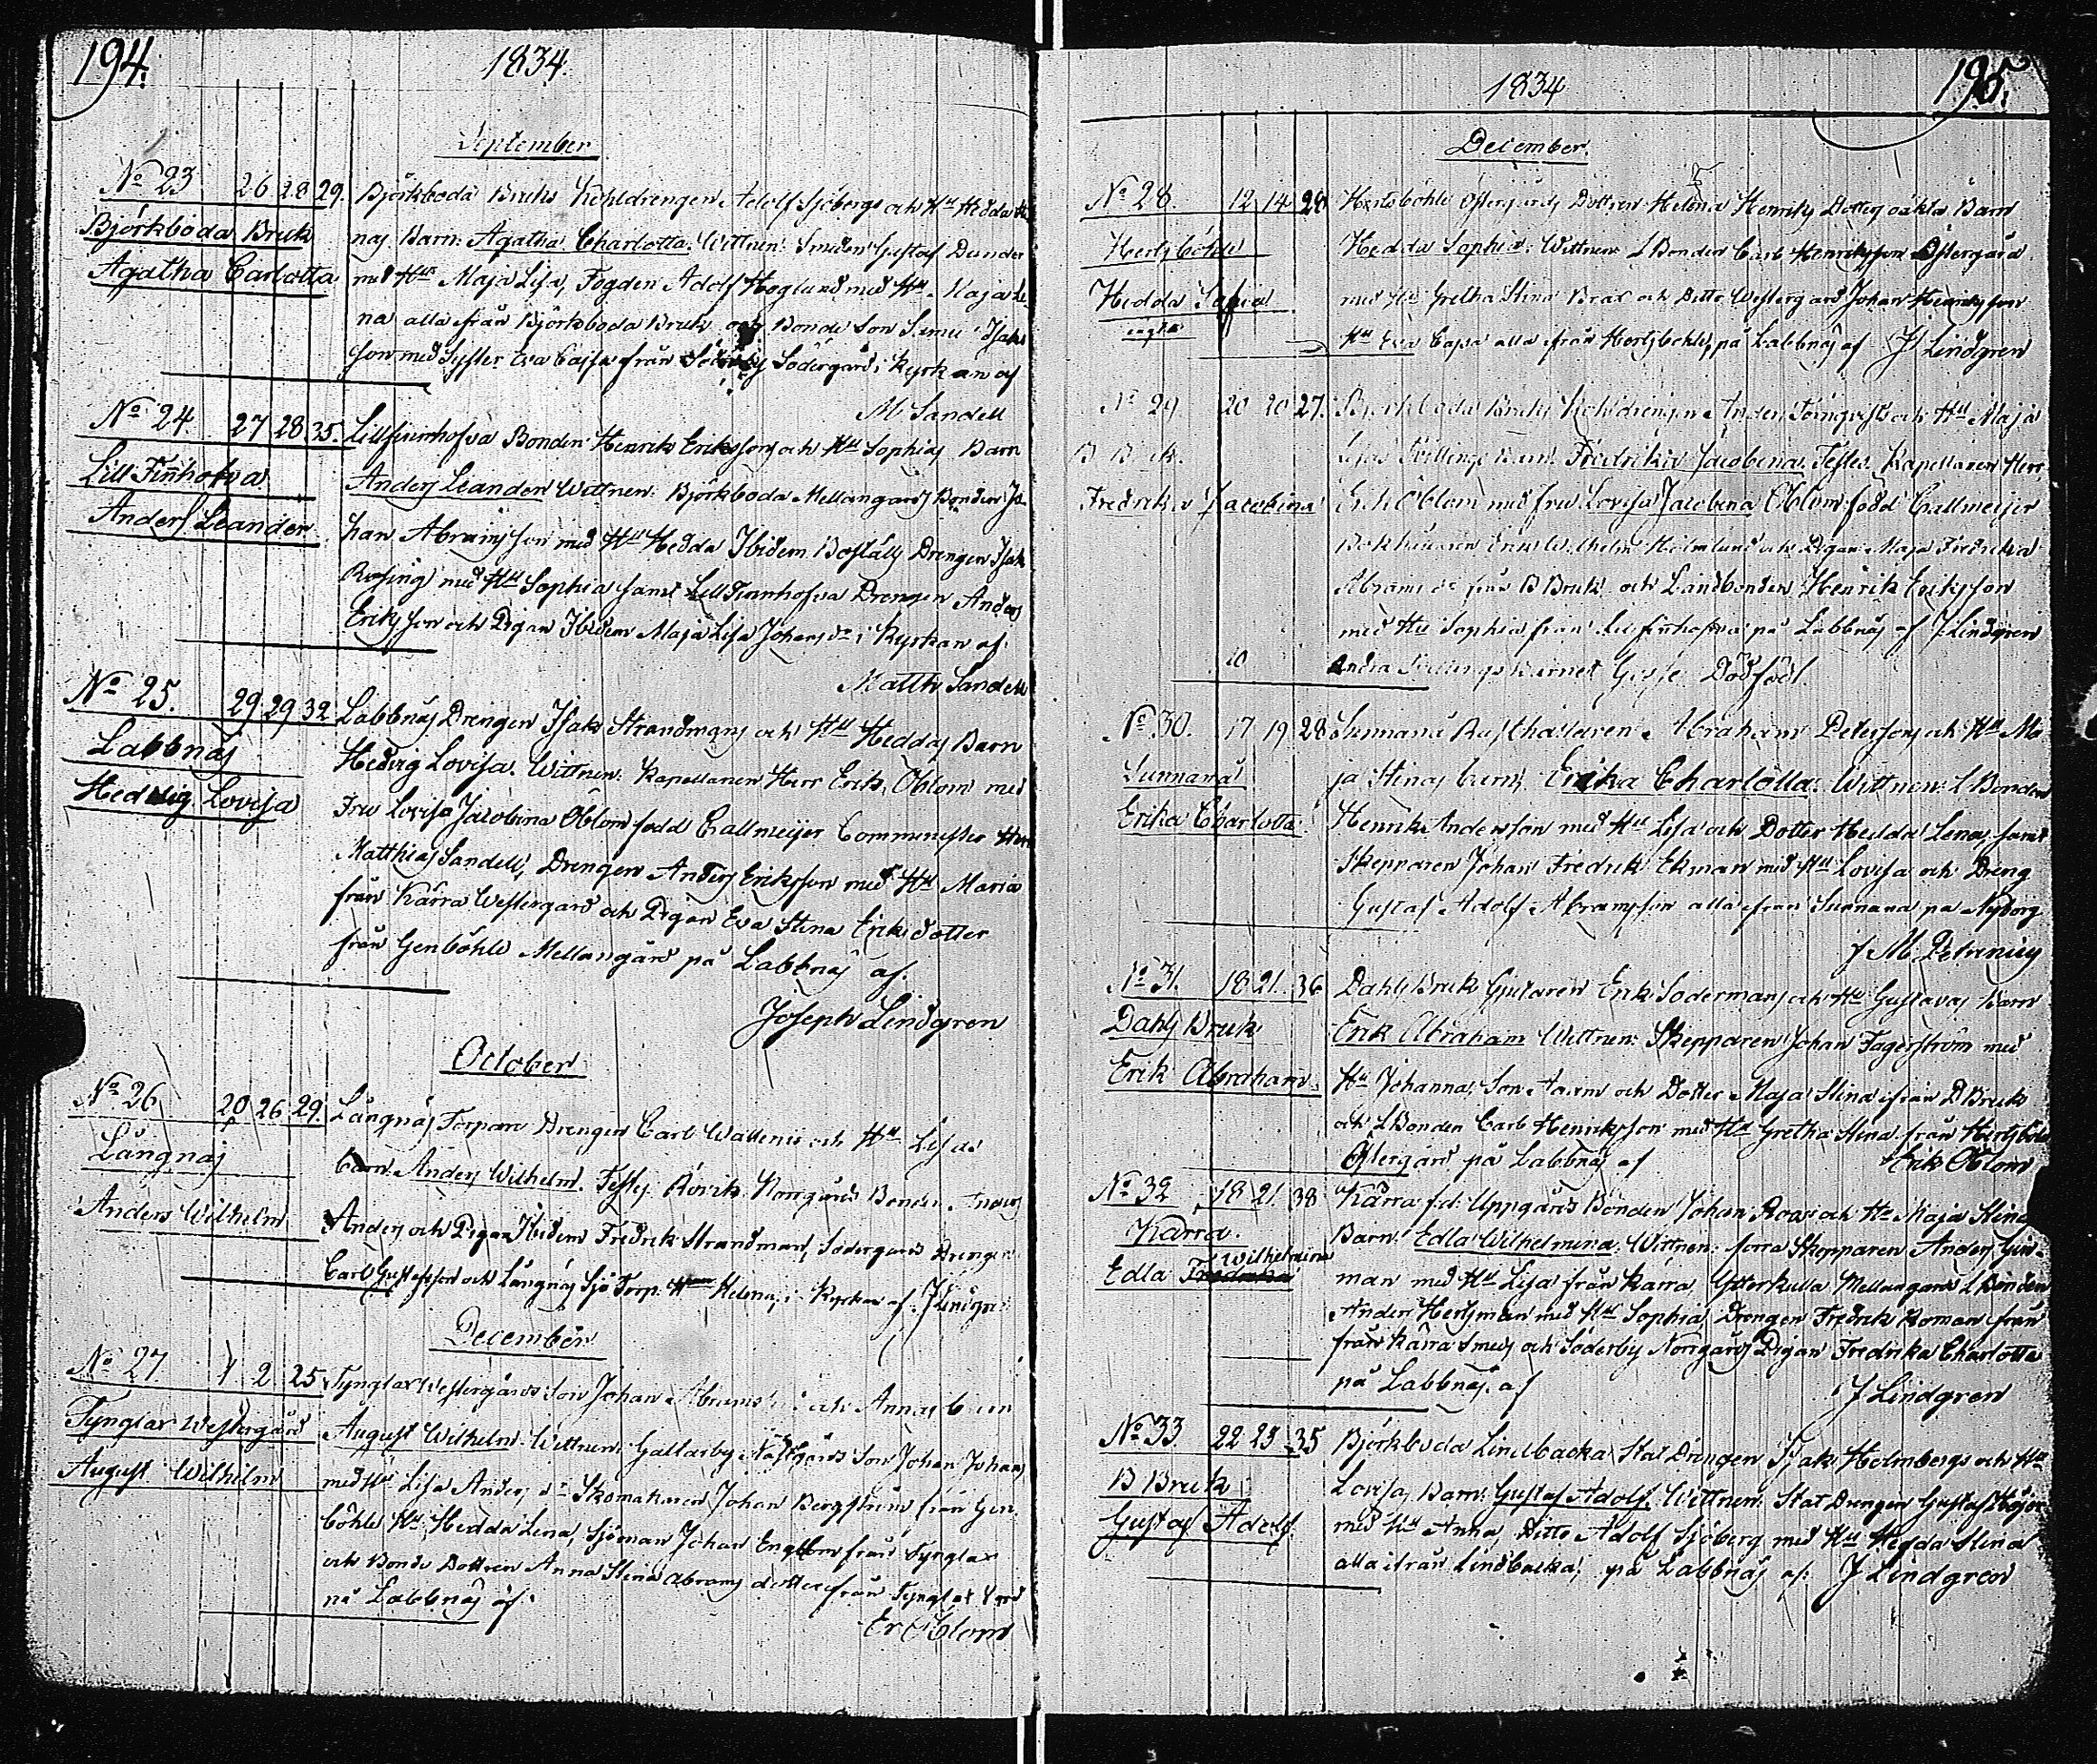 194.
1834.
September
No 23 26 28 29. Björkboda Bruks Kohldrengen Adolf Sjöbergs och Hu Hedda
Björkboda Bruk nas Barn: Agatha Charlotta. Wittnen: Smeden Gustaf Dunder
Agatha Carlotta med Hu Maja Lisa, Fogden Adolf Höglund med Hu Kaja Le
na alla från Björkboda Bruk och Bonde Son Simu Isaks
son med Syster Eva Cajsa från Söderby Södergård i Kyrkan af
M. Sandell
No 24. 27 28 35. Lillfinnhofva Bonden Henrik Erikssons och Hu Sophias Barn
Lill Finhofva Anders Leander Wittnen: Björkboda Mellangårds Bonden Jo
Anders Leander. han Abramsson med Hu Hedda Ibidem Boställs Drengen Isak
Rosing med Hu Sophia samt Lill Finnhofva Drengen Anders
Eriksson och Pigan Ibidem Maja Lisa Johans dr i Kyrkan af.
Matth Sandell
No 25. 29 29 32 Labbnäs Drengen Isaks Strandmans och Hu Heddas Barn
Labbnäs Hedvig Lovisa. Wittnen: Kapellanen Herr Erik Öblom med
Hedvig Lovisa Fru Lovisa Jacobina Öblom född Callmeijer Comminister Herr
Matthias Sandell, Drengen Anders Eriksson med Hu Maria
från Kärra Westergård och Pigan Eva Stina Eriksdotter
från Genböhle Mellangård på Labbnäs af.
Joseph Lindgren
October
No 26 20 26 29. Långnäs Torpare Drengen Carl Wallenii och Hu Lisas
Långnäs barn Anders Wilhelm. Testes. Rövik Norrgårds Bonden
Anders Wilhelm Anders och Pigan Ibidem Fredrik Strandman, Södergårds Drengen
Carl Gustafsson och Långnäs Sjö Torp. Helena, i Kyrkan af. J Lindgr
December
No 27. 1 2 25 Tynglax Westergårds Son Johan Abrams och Annas barn
Tynglax Westergård August Wilhelm. Wittnen: Gallarby Nästgårds Son Johan Johans
August Wilhelm med Hu Lisa Anders dr Skomakaren Johan Bergström från Gen
böhle Hu Hedda Lena, Sjöman Johan Engblom från Tynglax
och Bonde Dottren Anna Stina Abrams dotter från Tynglax
på Labbnäs af.
Er Öblom
195.
1834
December.
No 28. 12 14 28 Hertsböhle Östergårds Dottren Helena Henriks Dotters oäkta Barn
Hertsböhle Hedda Sophia. Wittnen: L Bonden Carl Henriksson Östergård
Hedda Sofia med Hu Gretha Stina Brax och Ditto Westergård Johan Henriksson
oägta Hu Eva Cajsa alla från Hertsböhle, på Labbnäs af J Lindgren
No 29 20 20 27. Björkboda Bruks Kohldrengen Anders Törnqvists och Hu Maja
B Bruk. Lisas Tvillings Barn. Fredrika Jacobina. Testes. Kapellanen Herr
Fredrika Jacobina Erik Öblom med fru Lovisa Jacobina Öblom född Callmeijer
Bokhållaren Eric Wilhelm Holmlund och Pigan Maja Fredrika
Abrams dr från B Bruk och Landbonden Henrik Eriksson
med Hu Sophia från Lillfinhofva på Labbnäs af J Lindgren
20 Andra Tvillings barnet Gosse Dödfödt
No 30. 17 19 28 Sunnanå Rusthållaren Abraham Peterssons och Hu Ma
Sunnanå ja Stinas barn, Erika Charlotta. Wittnen: L Bonden
Erika Charlotta. Henrik Andersson med Hu Lisa och Dotter Hedda Lena, samt
Skepparen Johan Fredrik Ekman med Hu Lovisa och Dreng
Gustaf Adolf Abramsson alla från Sunnanå på Nyborg
af M. Petrenius
No 31. 18 21 36 Dahls Bruk Gjutaren Erik Södermans och Hu Gustavas Barn
Dahls Bruk Erik Abraham Wittnen: Skepparen Johan Fagerström med
Erik Abraham. Hu Johanna, Son Aaron och Dotter Maja Stina från D Bruk
och L Bonden Carl Henriksson med Hu Gretha Stina från Hertsböle
Östergård på Labbnäs af Erik Öblom
No 32 18 21 38 Kärra fd. Uppgårds Bonden Johan Roos och Hu Maja Stinas
Kärra. Barn. Edla Wilhelmina. Wittnen: forra Skepparen Anders
Edla Fredrika Wilhelmina man med Hu Lisa från Kärra, Ytterkulla Mellangård L Bonden
Anders Hertsman med Hu Sophia Drengen Fredrik Roman från
från Kärra Smeds och Söderby Norrgårds Pigan Fredrika Charlotta
på Labbnäs af J Lindgren
No 33 22 23 35 Björkboda Lindbacka Stat Drengen Isak Holmbergs och Hu
B Bruk Lovisas Barn: Gustaf Adolf. Wittnen: Stat Drengen Gustaf
Gustaf Adolf med Hu Anna, Ditto Adolf Sjöberg med Hu Hedda Stina
alla ifrån Lindbacka, på Labbnäs af J Lindgren